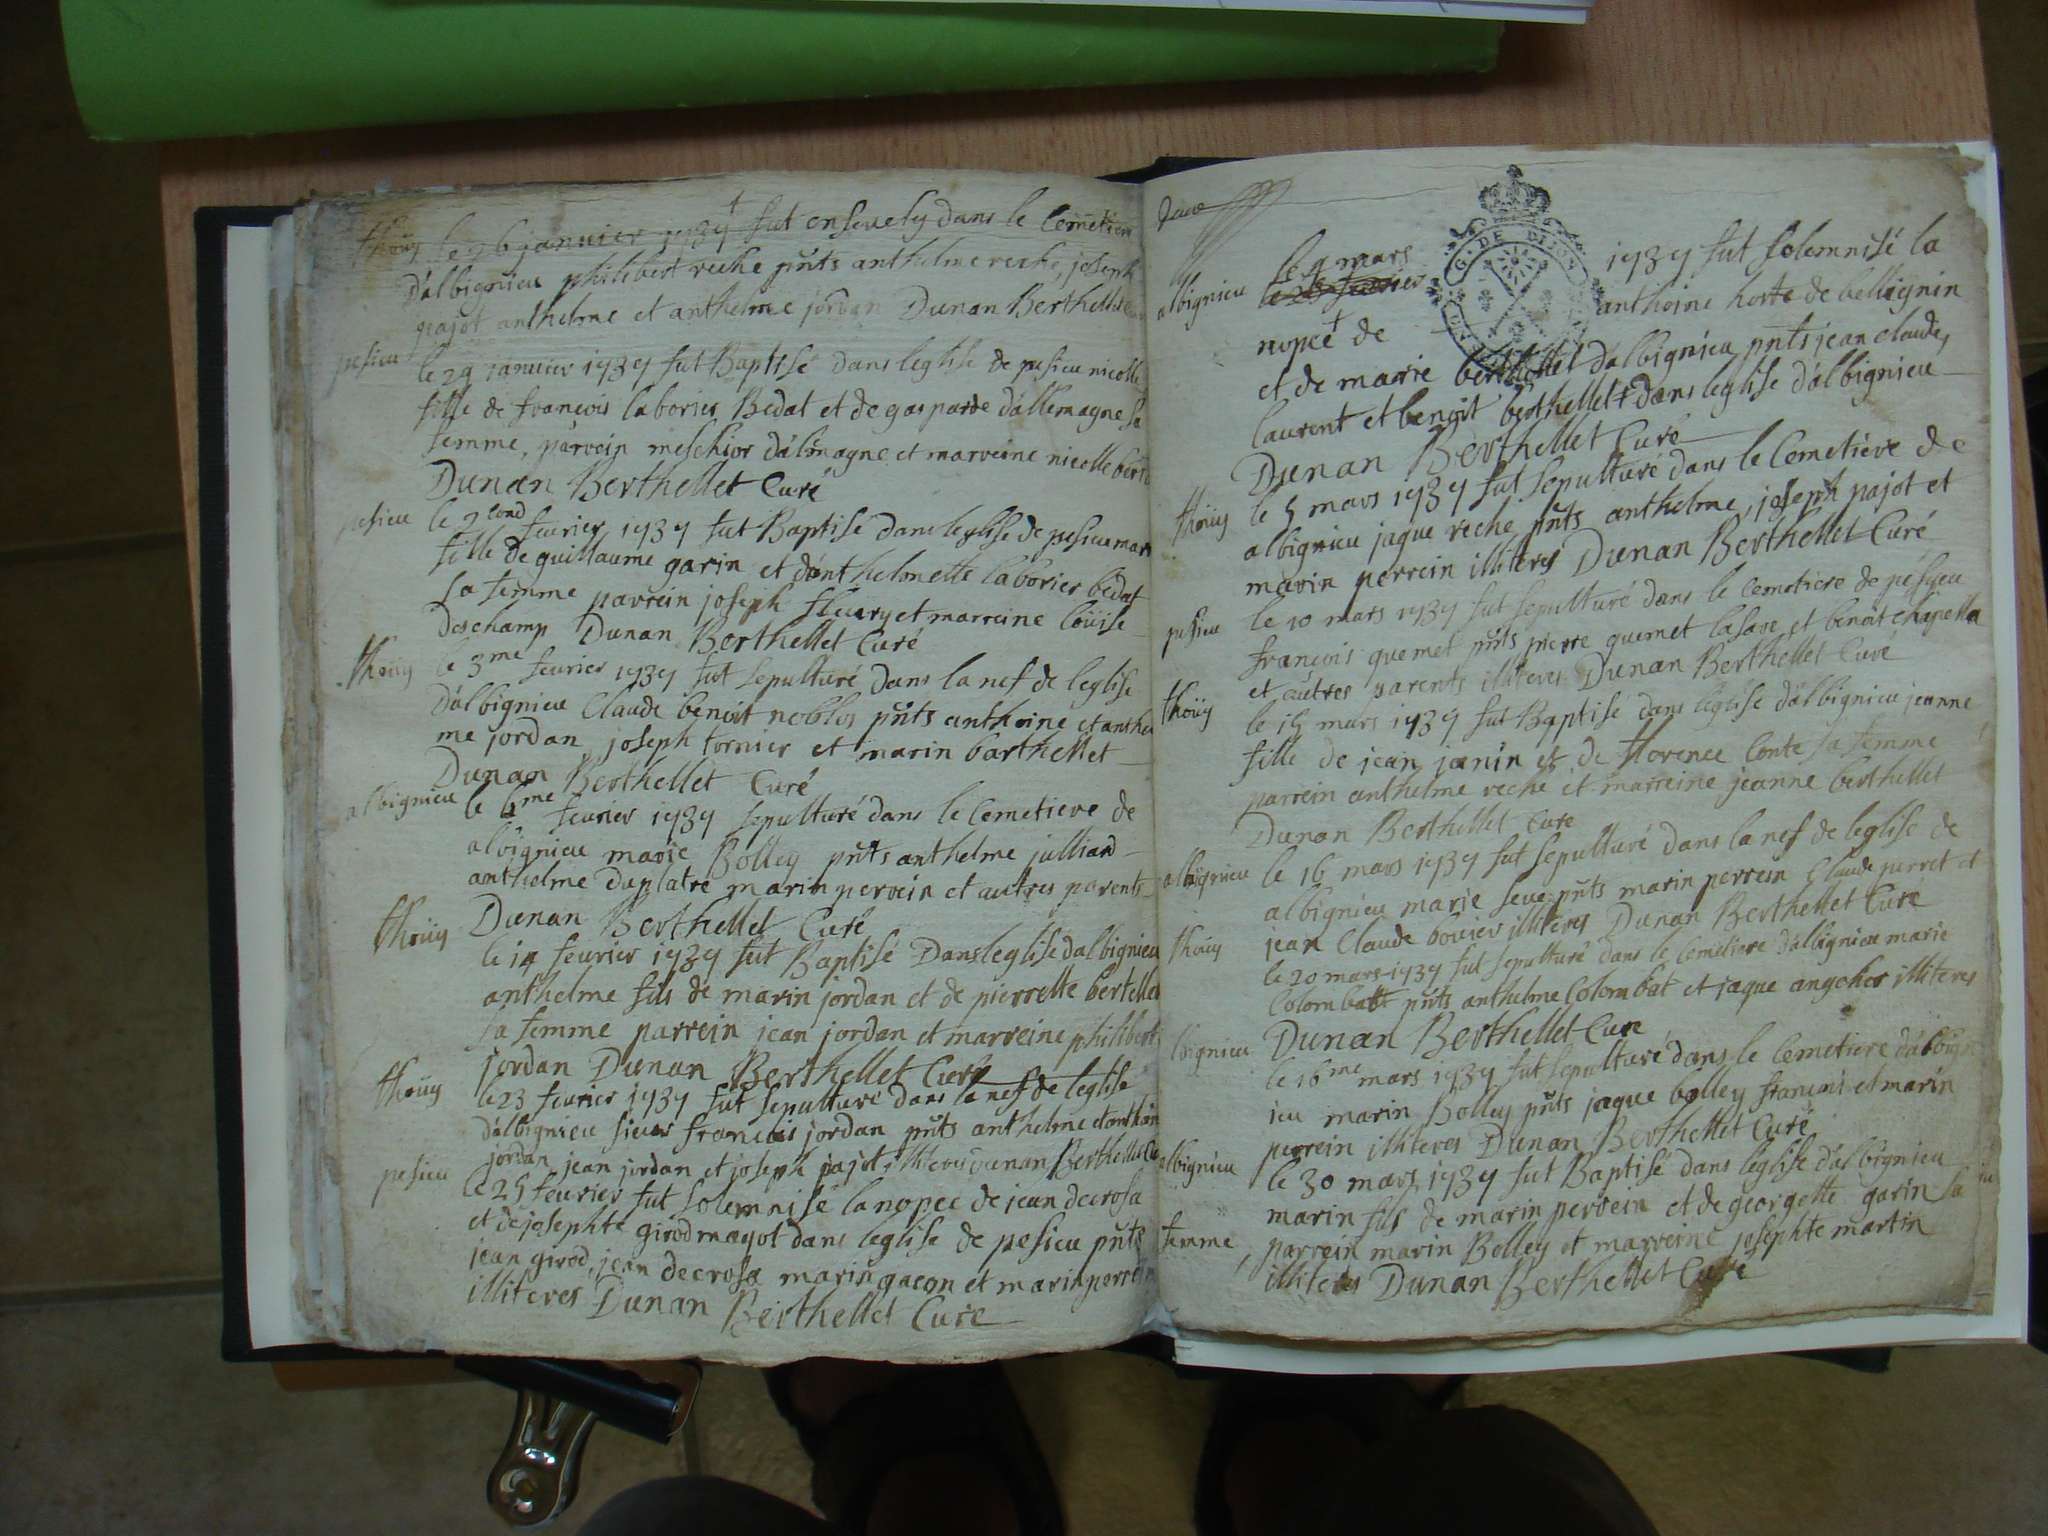 thoüy le 26 janvier 1737 fut ensevely dans le Cemetiere
d'albignieu philibert reche pnts anthelme reche, joseph
pajot anthelme et anthelme jordan Dunan Berthellet
pesieu le 29 janvier 1737 fut Baptisé dans leglise de pesieu nicolle
fille de francois laborier Bedat et de gasparde d'allemagne sa
femme, parrein melchior d'alemagne et marreine nicolle
Dunan Berthellet Curé
pesieu le 2cond fevrier 1737 fut Baptisé dans leglise de pesieu
fille de guillaume garin et d'anthelmette laborier bedat
sa femme parrein joseph fleury et marreine loüise
deschamp Dunan Berthellet Curé
thoüy le 3me fevrier 1737 fut sepulturé dans la nef de leglise
d'albignieu Claude benoit noblos pnts anthoine et anthel
me jordan, joseph tornier et marin barthellet
Dunan Berthellet Curé
albignieu le 4me fevrier 1737 sepulturé dans le Cemetiere de
albignieu marie Bolley pnts anthelme julliand
anthelme duplatre marin perrein et autres parents
Dunan Berthellet Curé
thoüy le 14 fevrier 1737 fut Baptisé Dans leglise d'albignieu
anthelme fils de marin jordan et de pierrette bertellet
sa femme parrein jean jordan et marreine philiberte
jordan Dunan Berthellet Curé
thoüy le 23 fevrier 1737 fut sepulturé dans la nef de leglise
d'albignieu sieur francois jordan pnts anthelme
jordan jean jordan et joseph pajot illiteres Dunan Berthellet
pesieu le 25 fevrier fut solemnisé la nopce de jean decrosa
et de josephte girod magot dans leglise de pesieu pnts
jean girod, jean decrosa marin gacon et marin perrein
illiteres Dunan Berthellet Curé
albignieu le 4 mars 1737 fut solemnisé la
le 28 fevrier
nopce de anthoine horte de bellignin
et de marie berthellet d'albignieu pnts jean claude,
laurent et benoit berthellet dans leglise d'albignieu
Dunan Berthellet Curé
thoüy le 5 mars 1737 fut sepulturé dans le Cemetiere de
albignieu jaque reche pnts anthelme, joseph pajot et
marin perrein illiteres Dunan Berthellet Curé
pesieu le 10 mars 1737 fut sepulturé dans le cemetiere de pesieu
francois quemet pnts pierre quemet et benoit
et autres parents illiteres Dunan Berthellet Curé
thoüy le 15 mars 1737 fut Baptisé dans leglise d'albignieu jeanne
fille de jean janin et de florence Conte sa femme
parrein anthelme reche et marreine jeanne berthellet
Dunan Berthellet Cure
albignieu le 16 mars 1737 fut sepulturé dans la nef de leglise de
albignieu marie seve pnts marin perrein Claude perret et
jean Claude bovier illiteres Dunan Berthellet Curé
thoüy le 20 mars 1737 fut sepulturé dans le Cemetiere d'albignieu marie
Colombatt pnts anthelme Colombat et jaque angeher illiteres
Dunan Berthellet Cure
lbignieu le 16me mars 1737 fut sepulturé dans le Cemetiere d'albign
ieu marin Bolley pnts jaque bolley francois et marin
perrein illiteres Dunan Berthellet Curé
albignieu le 30 mars 1737 fut Baptisé dans leglise d'albignieu
marin fils de marin perrein et de georgette garin sa
femme, parrein marin Bolley et marreine josephte martin
illiteres Dunan Berthellet Cure